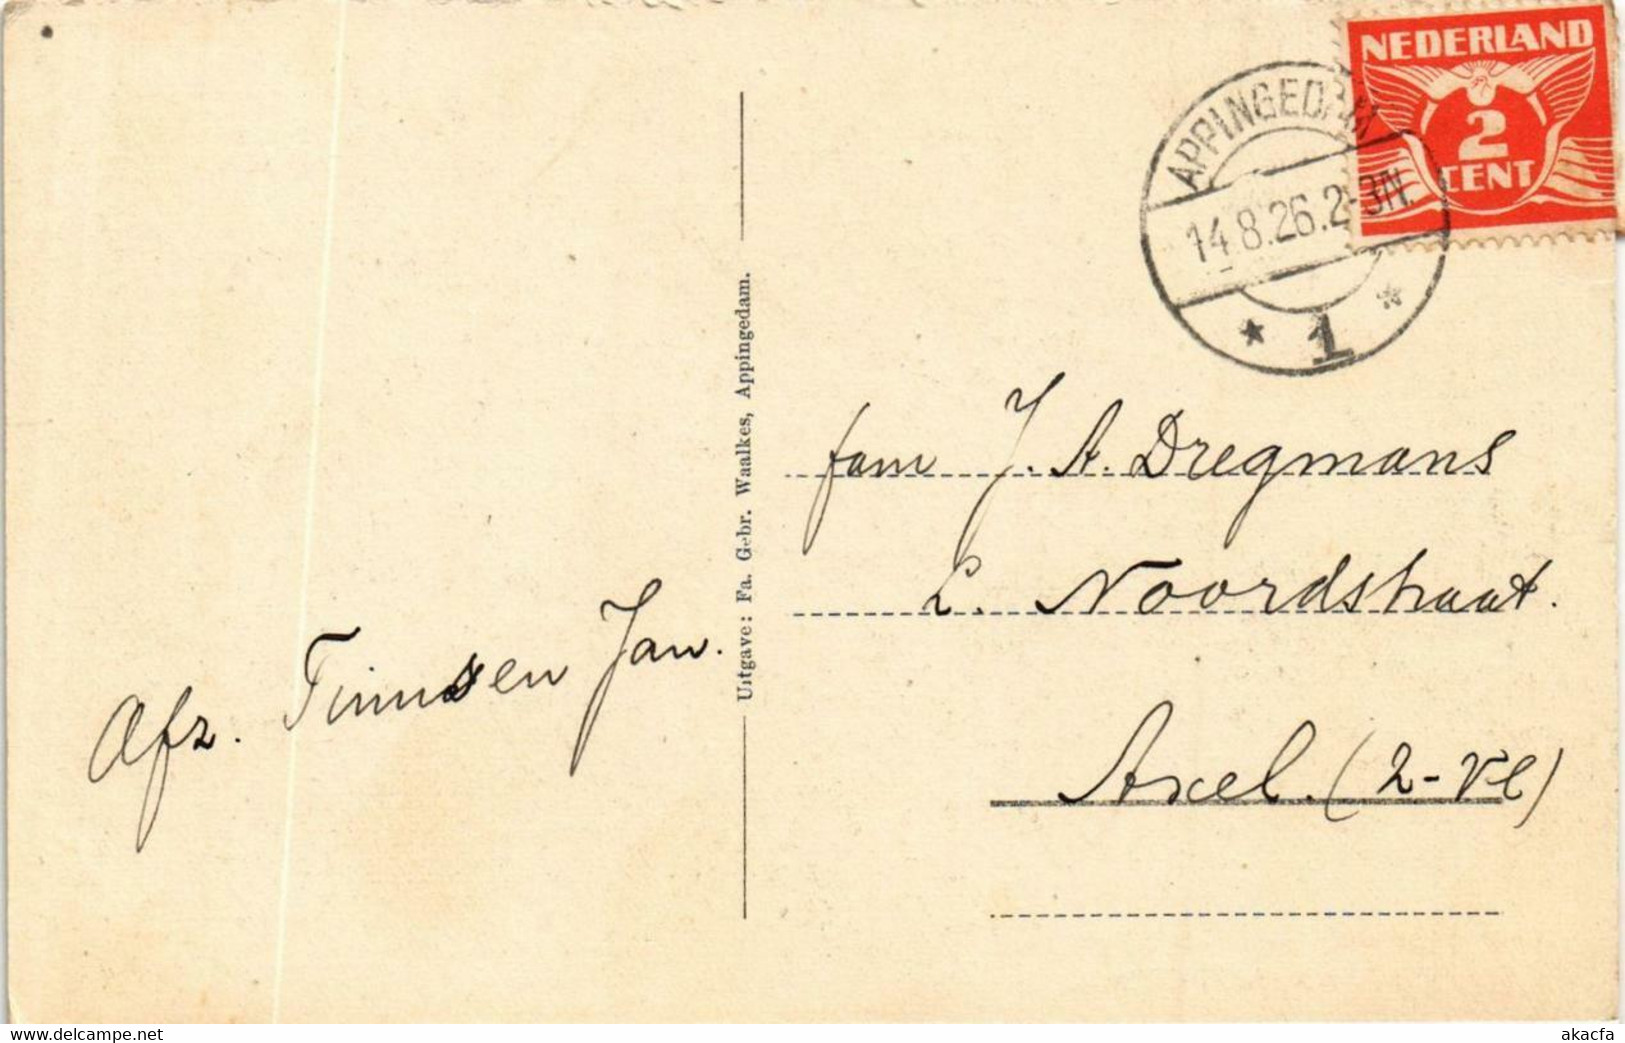 NEDERLAND
2
CENT
APPINGEDAM
14.8.26.2-3N.
* 1 *
fam J. A. Dregmans
L. Noordstraat.
Axel. (Z-Vl)
Afz. Timmsen Jan.
Uitgave: Fa. Gebr. Waalkes, Appingedam.
www.delcampe.net
akacfa